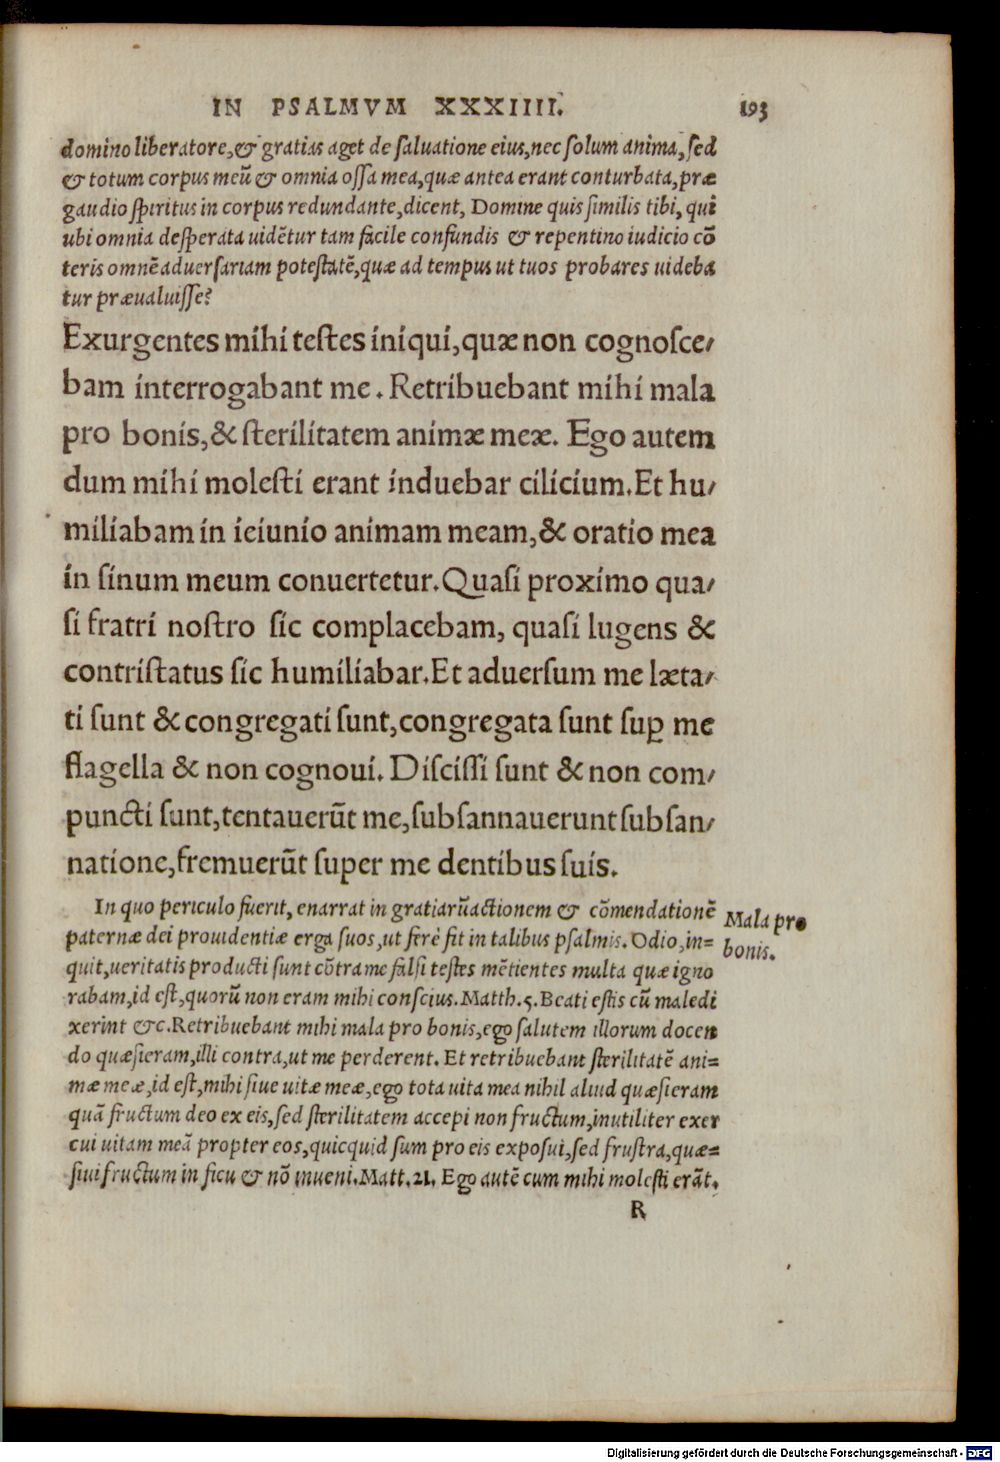 IN PSALMVM XXXIIII. 193
domino liberatore, & gratias aget de saluatione eius, nec solum anima, sed
& totum corpus meũ & omnia ossa mea, quæ antea erant conturbata, præ
gaudio spiritus in corpus redundante, dicent, Domine quis similis tibi, qui
ubi omnia desperata uidẽtur tam facile confundis & repentino iudicio cõ
teris omnẽ aduersariam potestatẽ, quæ ad tempus ut tuos probares uideba
tur præualuisse?
Exurgentes mihi testes iniqui, quæ non cognosce/
bam interrogabant me. Retribuebant mihi mala
pro bonis, & sterilitatem animæ meæ. Ego autem
dum mihi molesti erant induebar cilicium. Et hu/
miliabam in ieiunio animam meam, & oratio mea
in sinum meum conuertetur. Quasi proximo qua/
si fratri nostro sic complacebam, quasi lugens &
contristatus sic humiliabar. Et aduersum me læta/
ti sunt & congregati sunt, congregata sunt sup̱ me
flagella & non cognoui. Discissi sunt & non com/
puncti sunt, tentauerũt me, subsannauerunt subsan/
natione, fremuerũt super me dentibus suis.
In quo periculo fuerit, enarrat in gratiarũ actionem & cõmendationẽ
paternæ dei prouidentiæ erga suos, ut ferè fit in talibus psalmis. Odio, in=
quit, ueritatis producti sunt cõtra me falsi testes mẽtientes multa quæ igno
rabam, id est, quorũ non eram mihi conscius. Matth. 5. Beati estis cũ maledi
xerint &c. Retribuebant mihi mala pro bonis, ego salutem illorum docen
do quæsieram, illi contra, ut me perderent. Et retribuebant sterilitatẽ ani=
mæ meæ, id est, mihi siue uitæ meæ, ego tota uita mea nihil aliud quæsieram
quã fructum deo ex eis, sed sterilitatem accepi non fructum, inutiliter exer
cui uitam meã propter eos, quicquid sum pro eis exposui, sed frustra, quæ=
siui fructum in ficu & nõ inueni. Matt. 21. Ego autẽ cum mihi molesti erãt.
Mala pro
bonis.
R
Digitalisierung gefördert durch die Deutsche Forschungsgemeinschaft - DFG